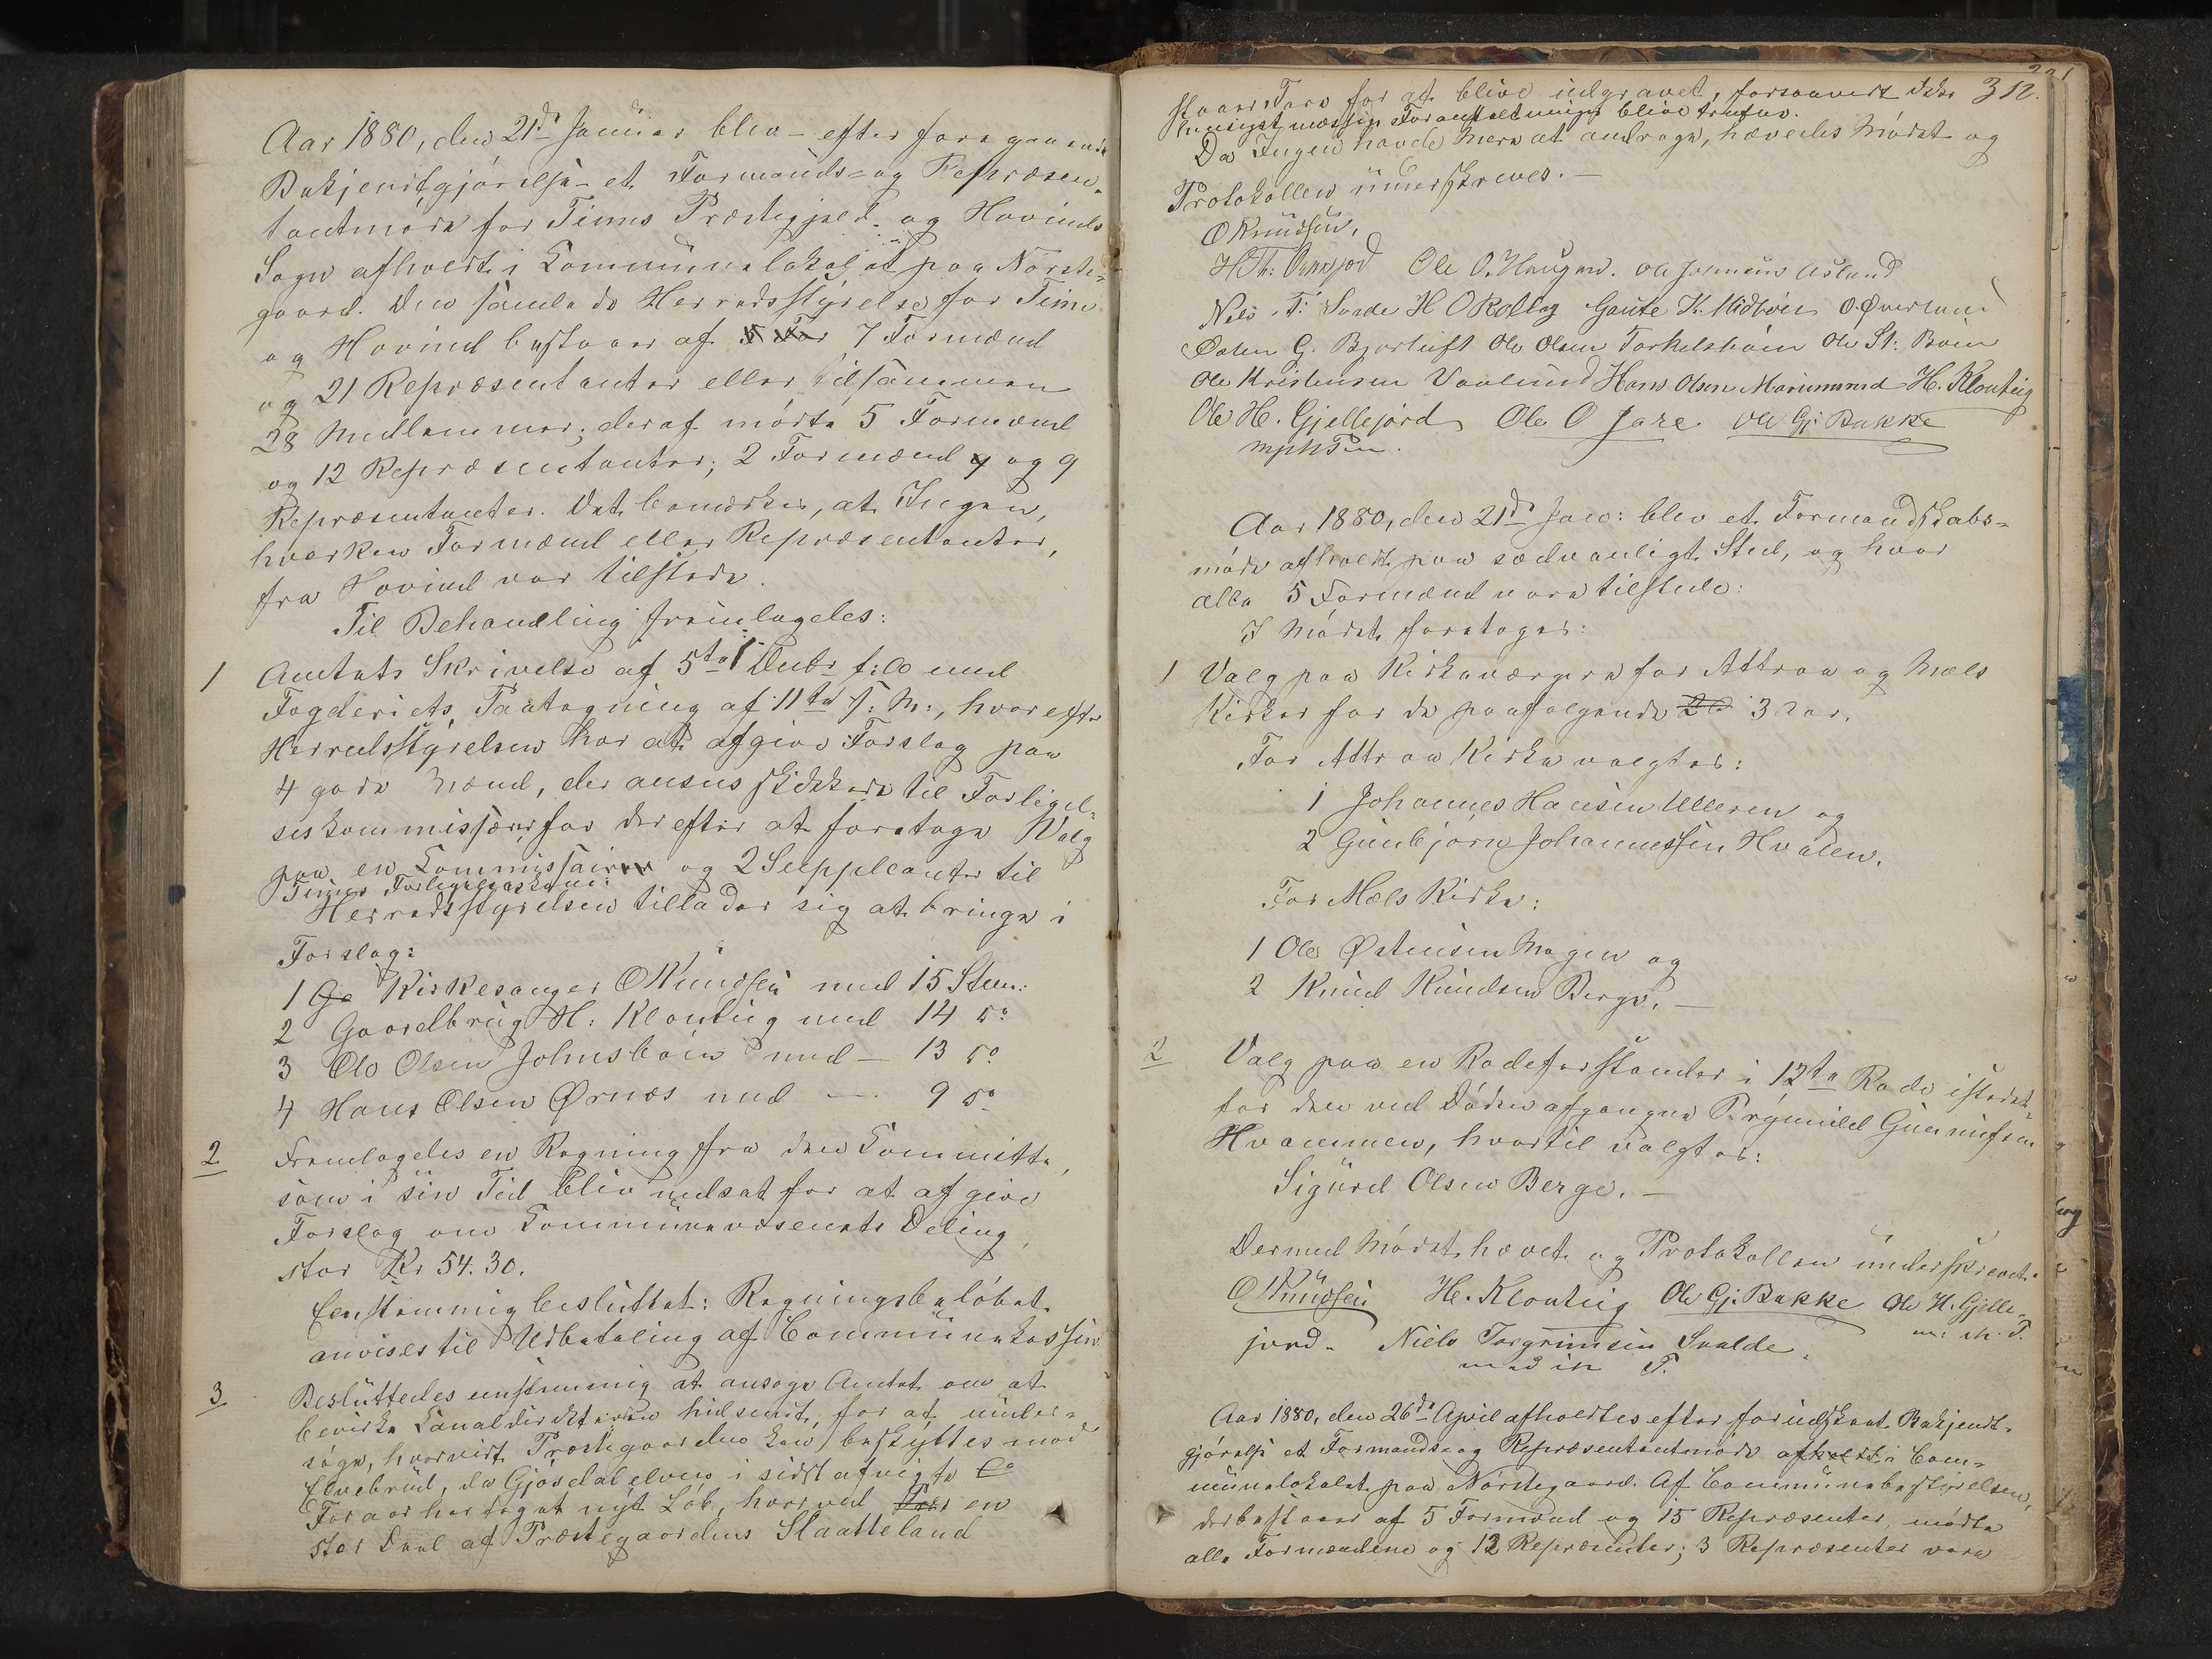 Aar 1880, den 21de Januar blev – efter foregaaende
Bekjendtgjørelse – et Formands- og Repræsen-
tantmøde for Tinns Præstegjæld og Hovinds
Sogn afholdt i Communelokalet paa Nørste-
gaard. Den samlede Herredsstyrelse for Tinn
og Hovind bestaaer af 5 For 7 Formænd
og 21 Repræsentanter eller tilsammen
28 Medlemmer; deraf mødte 5 Formænd
og 12 Repræsentanter; 2 Formænd og og 9
Repræsentanter. Det bemærkes, at Ingen,
hverken Formænd eller Repræsentanter,
fra Hovind var tilstede.
Til Behandling fremlagdes:
1 Amtets Skrivelse af 5te Decbr f: A med
Fogderiets Paategning af 11te s: M:, hvorefter
Herredsstyrelsen har at afgive Forslag paa
4 gode Mænd, der ansees skikkede til Forligel-
seskommissærer for derefter at foretage Valg
paa en Commissair og 2 Suppleanter til
Tinns Forligelseskom:
Herredsstyrelsen tillader sig at bringe i
Forslag:
1 Ga Kirkesanger O Knudsen med 15 Stem:
2 Gaardbrug H: Klonteig med 14 do
3 Ole Olsen Johnsbøin med – 13 do
4 Hans Olsen Ørnæs med — 9 do
2 Fremlagdes en Regning fra den Committe,
som i sin Tid blev nedsat for at afgive
Forslag om Communevæsenets Deling,
stor Kr 54.30.
Eenstemmig besluttet: Regningsbeløbet
anvises til Udbetaling af Communekassen.
3 Besluttedes eenstemmig at ansøge Amtet om at
bevirke Canaldirektøren hidsendt, for at under-
søge, hvorvidt Præstegaarden kan beskyttes mod
Elvebrud, da Gjøsdalelven i sidst afvigte
Foraar har taget nyt Løb, hvorved For en
stor Deel af Præstegaardens Slaatteland
312.
staaer Fare for at blive udgravet, forsaavidt ikke
hensigtsmæssige Foranstaltninger blive trufne.
Da Ingen havde mere at andrage, hævedes Mødet og
Protokollen underskreves. —
O Knudsen,
Ole O. Haugen. Ole Johnsen Aasland
Nils T: Svade H O Rollag Gaute K. Midbøen O. Øverland
Østen G. Bjortuft Ole Olsen Torkelsbøin Ole St: Bøin
Ole Kristensen Vaalund Hans Olsen Marumsrud H. Klonteig
Ole H. Gjellejord Ole O Jare Ole Gj. Bakke
mphPen.
Aar 1880, den 21de Jan: blev et Formandskabs-
møde afholdt paa sædvanligt Sted, og hvor
alle 5 Formænd vare tilstede:
I Mødet foretoges:
1 Valg paa Kirkeværgere for Attraa og Mæls
Kirker for de paafølgende 2 3 Aar.
For Attraa Kirke valgtes:
1 Johannes Hansen Ulleren og
2 Gunbjørn Johannessen Hvalen.
For Mæls Kirke:
1 Ole Østensen Mogen og
2 Knud Knudsen Berge. —
2 Valg paa en Rodeforstander i 12te Rode istedet
for den ved Døden afgangne Brynild Gunnufsen
Hvammen, hvortil valgtes:
Sigurd Olsen Berge. —
Dermed Mødet hævet og Protokollen underskrevet.
O Knudsen H. Klonteig Ole Gj: Bakke Ole H. Gjelle-
jord. Niels Torgrimsen Svalde. m: ih. P.
med ih P.
Aar 1880, den 26de April afholdtes efter forudskeet Bekjendt-
gjørelse et Formands- og Repræsentantmøde afholdt i Com-
munelokalet paa Nørstegaard. Af Communebestyrelsen,
der bestaaer af 5 Formænd og 15 Repræsenter, mødte
alle Formændene og 12 Repræsenter; 3 Repræsenter vare